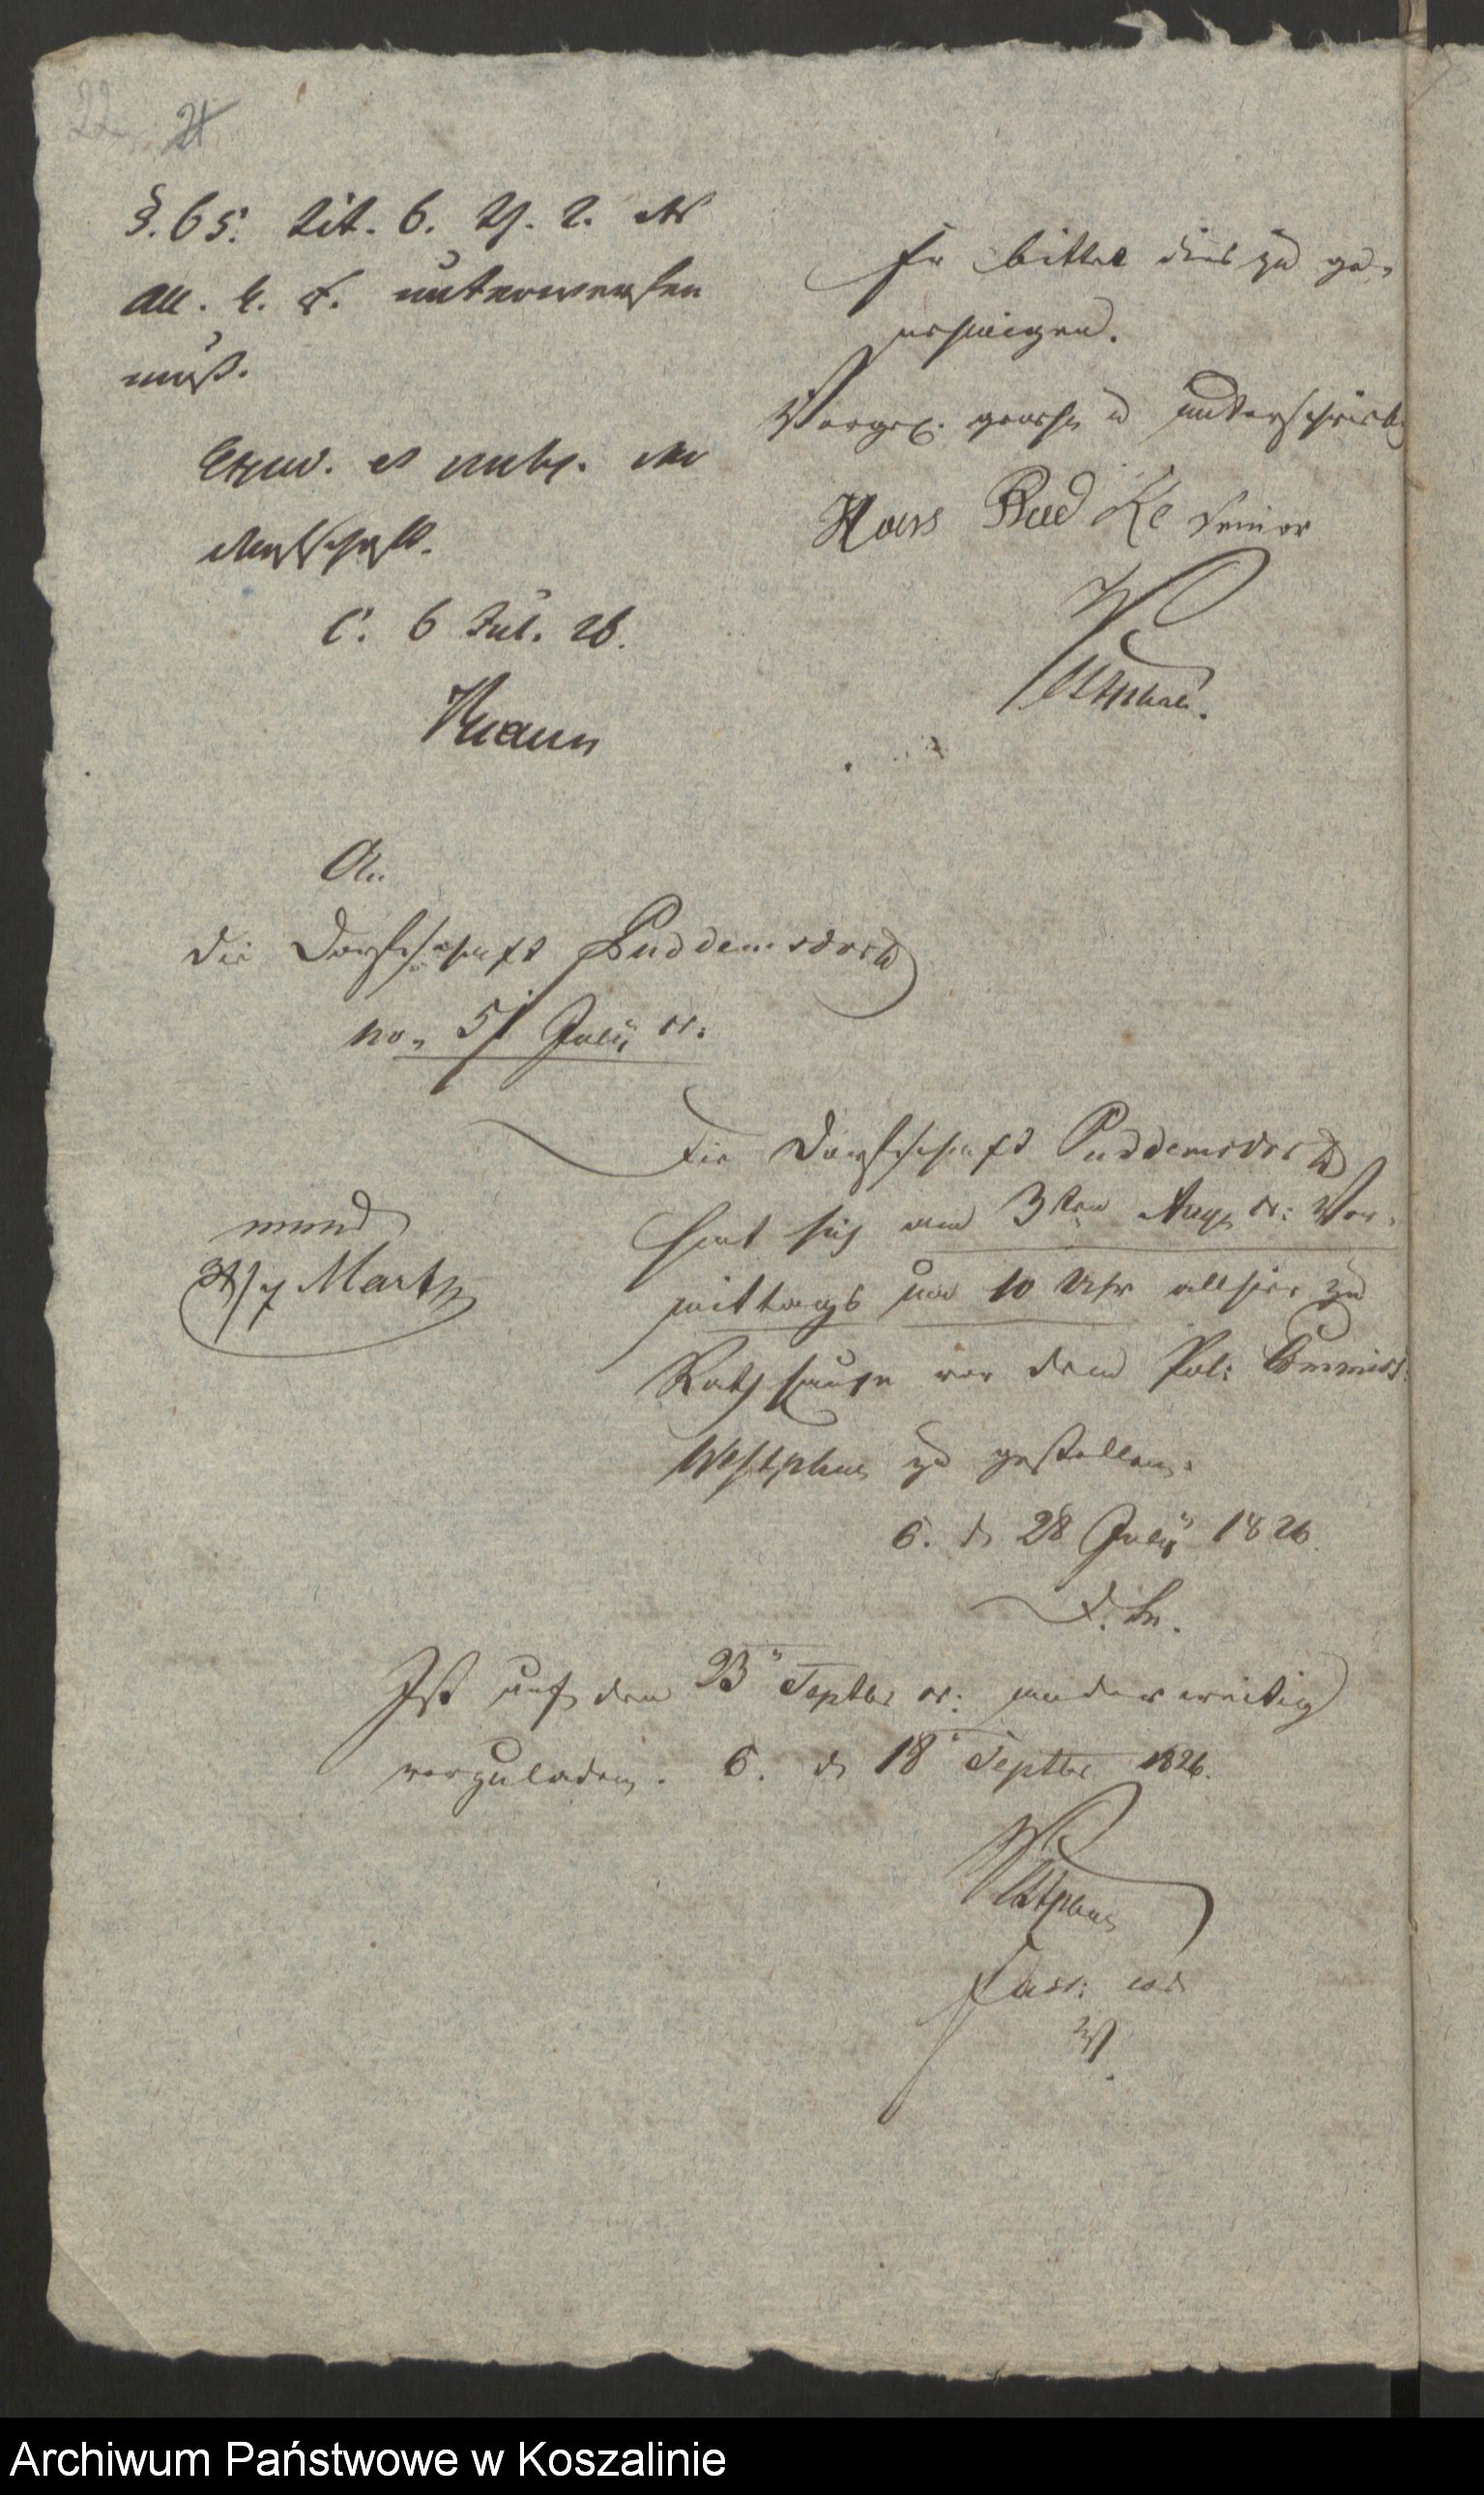 22
21
§. 65. tit. 6. Th. 2. des
All. L. R. unterwerfen
muß.
der
Dorfschaft.
C. 6 Jul. 26.
Er bittet dies zu ge-
nehmigen.
Vorgel. genehm u unterschrieb
Hans Rad Ke Senior
Westphal.
An
die Dorfschaft Puddemsdorff
no. 5/ July cr:
Die Dorfschaft Puddemsdorff
hat sich am 3ten Aug cr: Vor-
mittags um 10 Uhr allhier zu
Rathhause vor dem Pol: Commiss:
Westphal zu gestellen.
C. d 28 July 1826.
D. M.
mund
Martz
Ist auf den 23 Septbr cr: anderweitig
vorzuladen. C. d 18 Septbr 1826.
Westphal
W
Archiwum Państwowe w Koszalinie